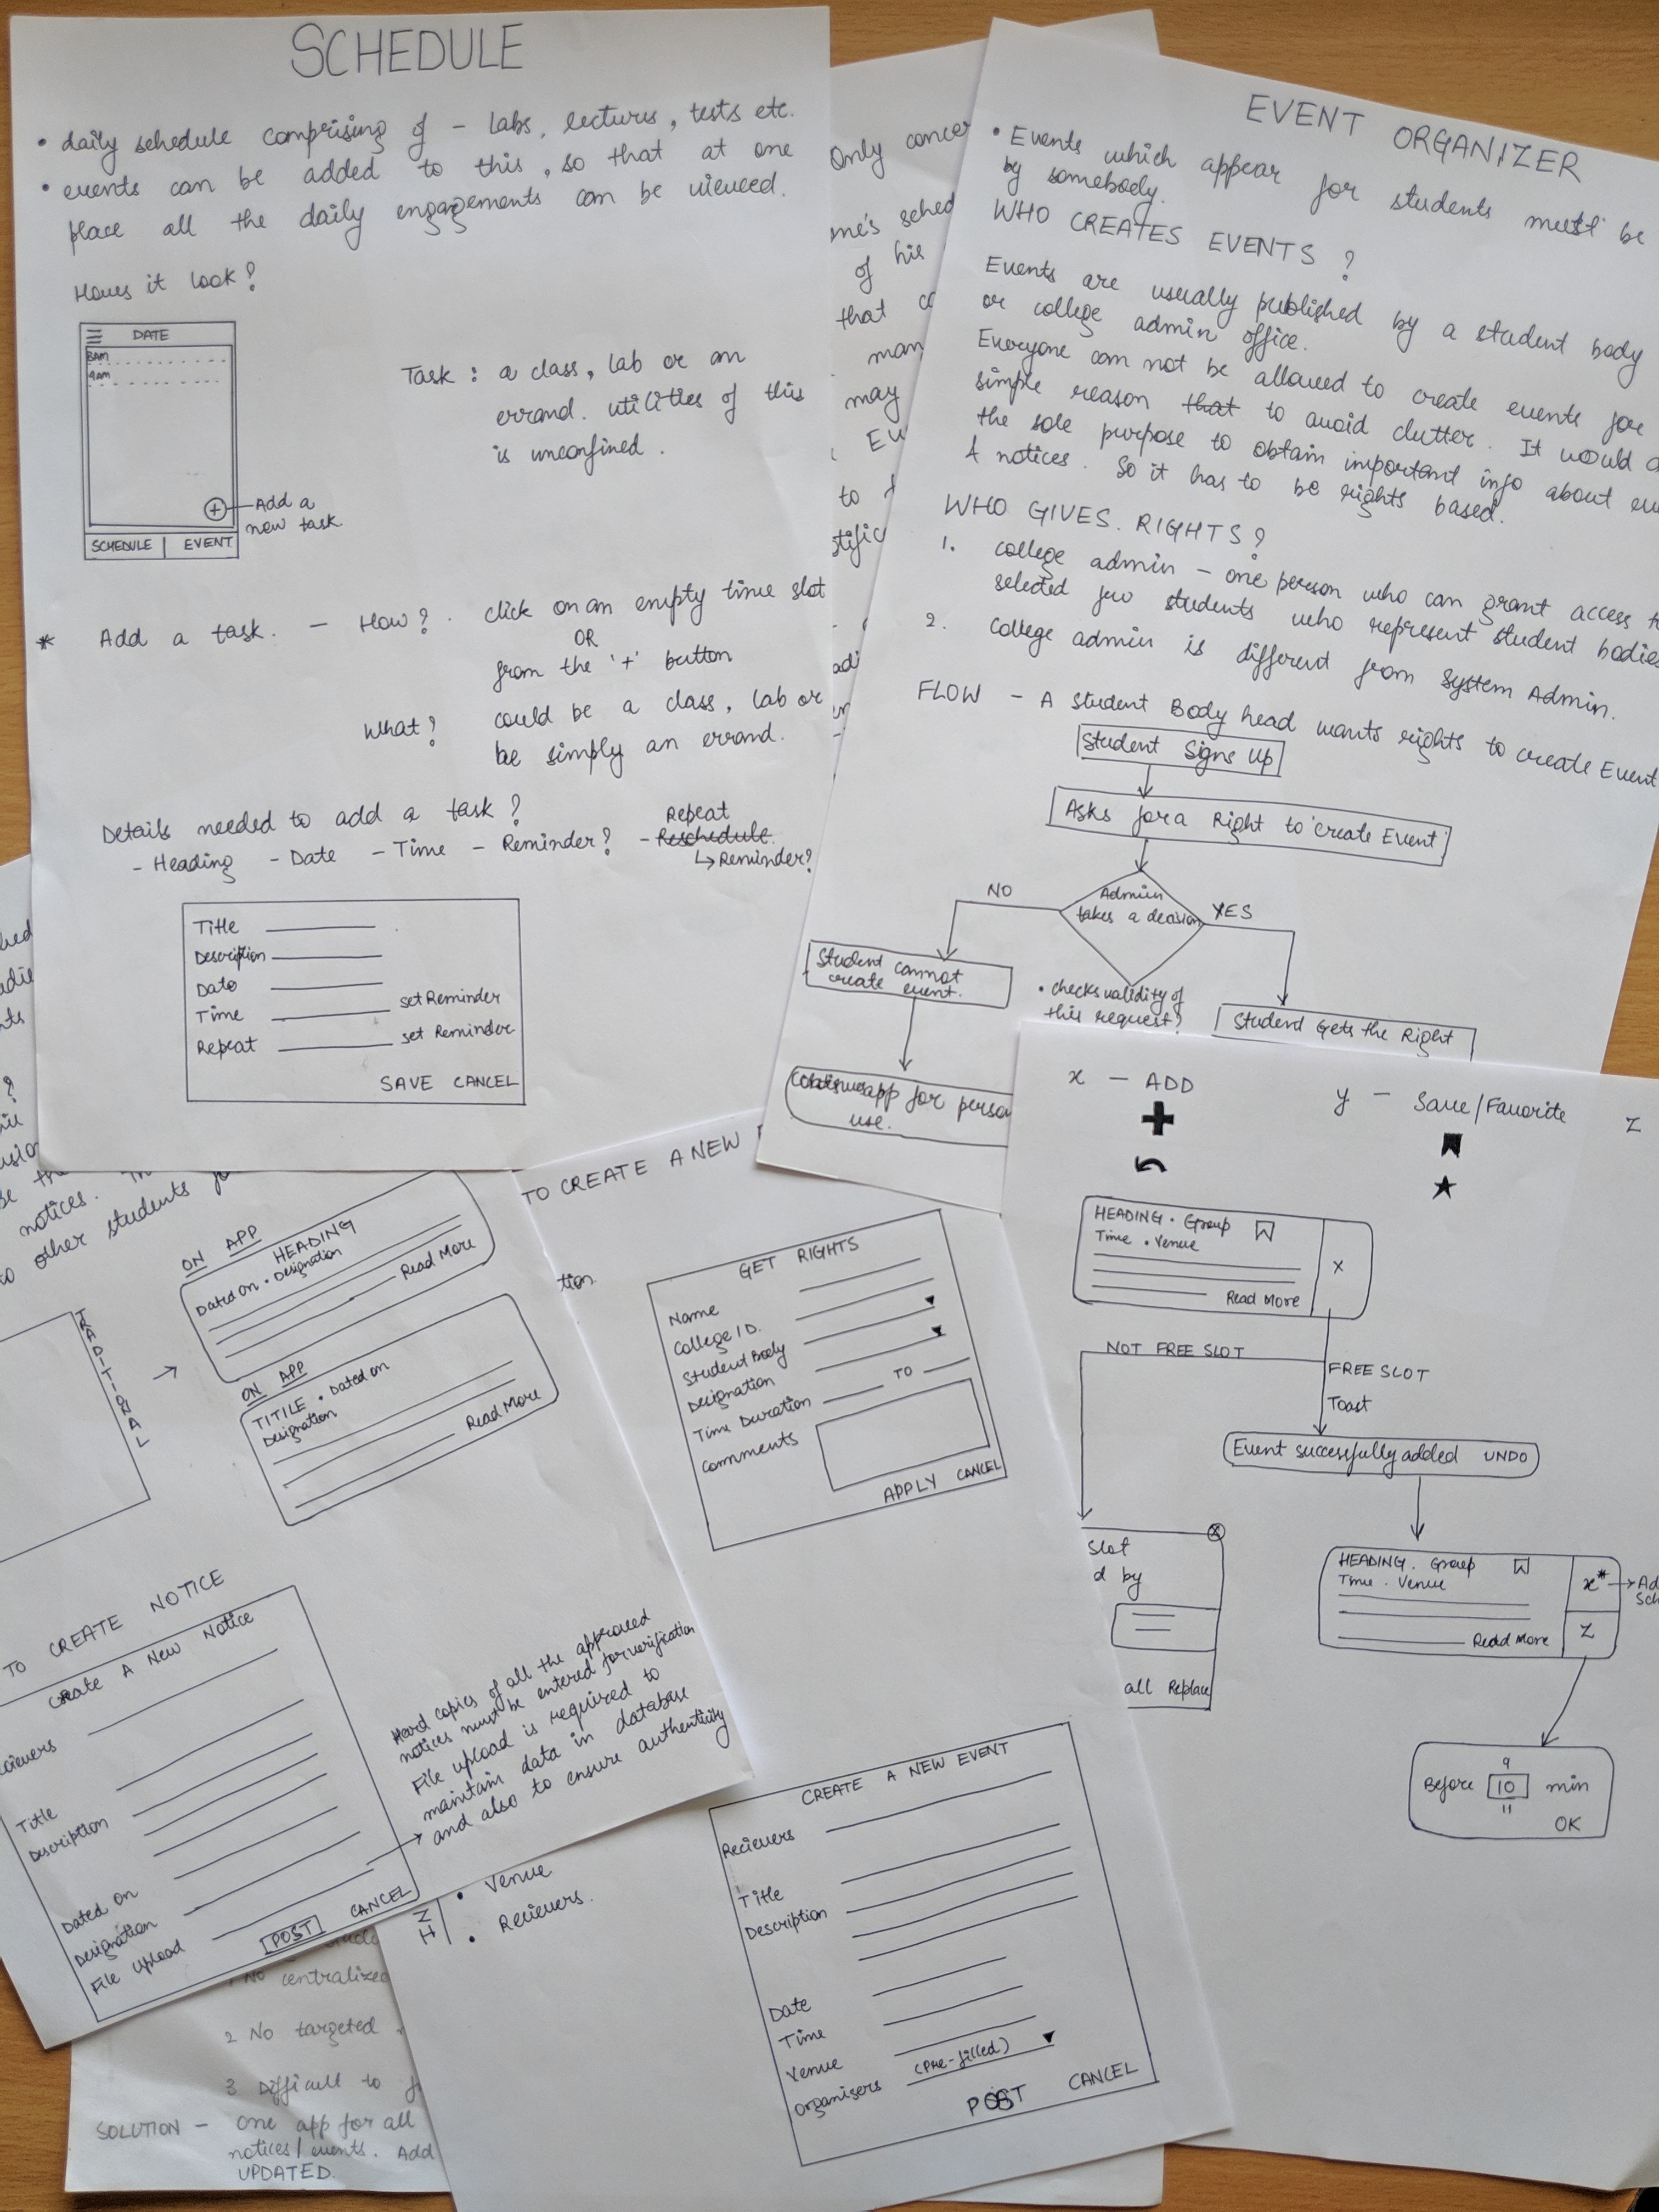 SCHEDULE
• daily schedule comprising of - labs, lectures, tests etc.
• events can be added to this, so that at one
place all the daily engagements can be viewed.
Hows it look?
DATE
8AM
9AM
SCHEDULE | EVENT
Add a
new task.
Task : a class, lab or an
errand. utilities of this
is unconfined.
* Add a task. - How? click on an empty time slot
OR
from the '+' button
What? could be a class, lab or
be simply an errand.
Details needed to add a task?
- Heading - Date - Time - Reminder? - Reschedule
Repeat
↳ Reminder?
Title
Description
Date
Time set Reminder
Repeat set Reminder
SAVE CANCEL
Only
of his
that
may
to
EVENT ORGANIZER
• Events which appear for students must be
by somebody.
WHO CREATES EVENTS ?
Events are usually published by a student body
or college admin office.
Everyone can not be allowed to create events for
simple reason that to avoid clutter. It would
the sole purpose to obtain important info about
& notices. So it has to be rights based.
WHO GIVES RIGHTS?
1. college admin - one person who can grant access
selected few students who represent student bodies
2. college admin is different from System Admin.
FLOW - A Student Body head wants rights to create Event
Student Signs Up
Asks for a Right to 'Create Event'
Admin
takes a decision
NO
YES
Student cannot
create event.
• checks validity of
this request?
Student Gets the Right
app for
use.
x - ADD
y - Save/Favorite
z
HEADING • Group
Time • Venue
Read More
X
NOT FREE SLOT
FREE SLOT
Toast
Event successfully added UNDO
Slot
by
all Replace
HEADING . Group
Time . Venue
Read More
x*
Z
9
Before 10 min
11
OK
TO CREATE A NEW
GET RIGHTS
Name
College ID.
Student Body
Designation
Time Duration TO
Comments
APPLY CANCEL
notices.
to other students
TRADITIONAL
ON APP
HEADING
Dated on • Designation
Read More
ON APP
TITILE • Dated on
Designation
Read More
TO CREATE NOTICE
Create A New Notice
Title
Description
Dated on
Designation
File Upload
POST CANCEL
Hard copies of all the approved
notices must be entered for verification
File upload is required to
maintain data in database
and also to ensure authenticity
• Venue
• Recievers.
CREATE A NEW EVENT
Recievers
Title
Description
Date
Time
Venue
Organisers (Pre-filled)
POST CANCEL
No centralized
2 No targeted
3 Difficult to
SOLUTION - One app for all
notices/events. Add
UPDATED.